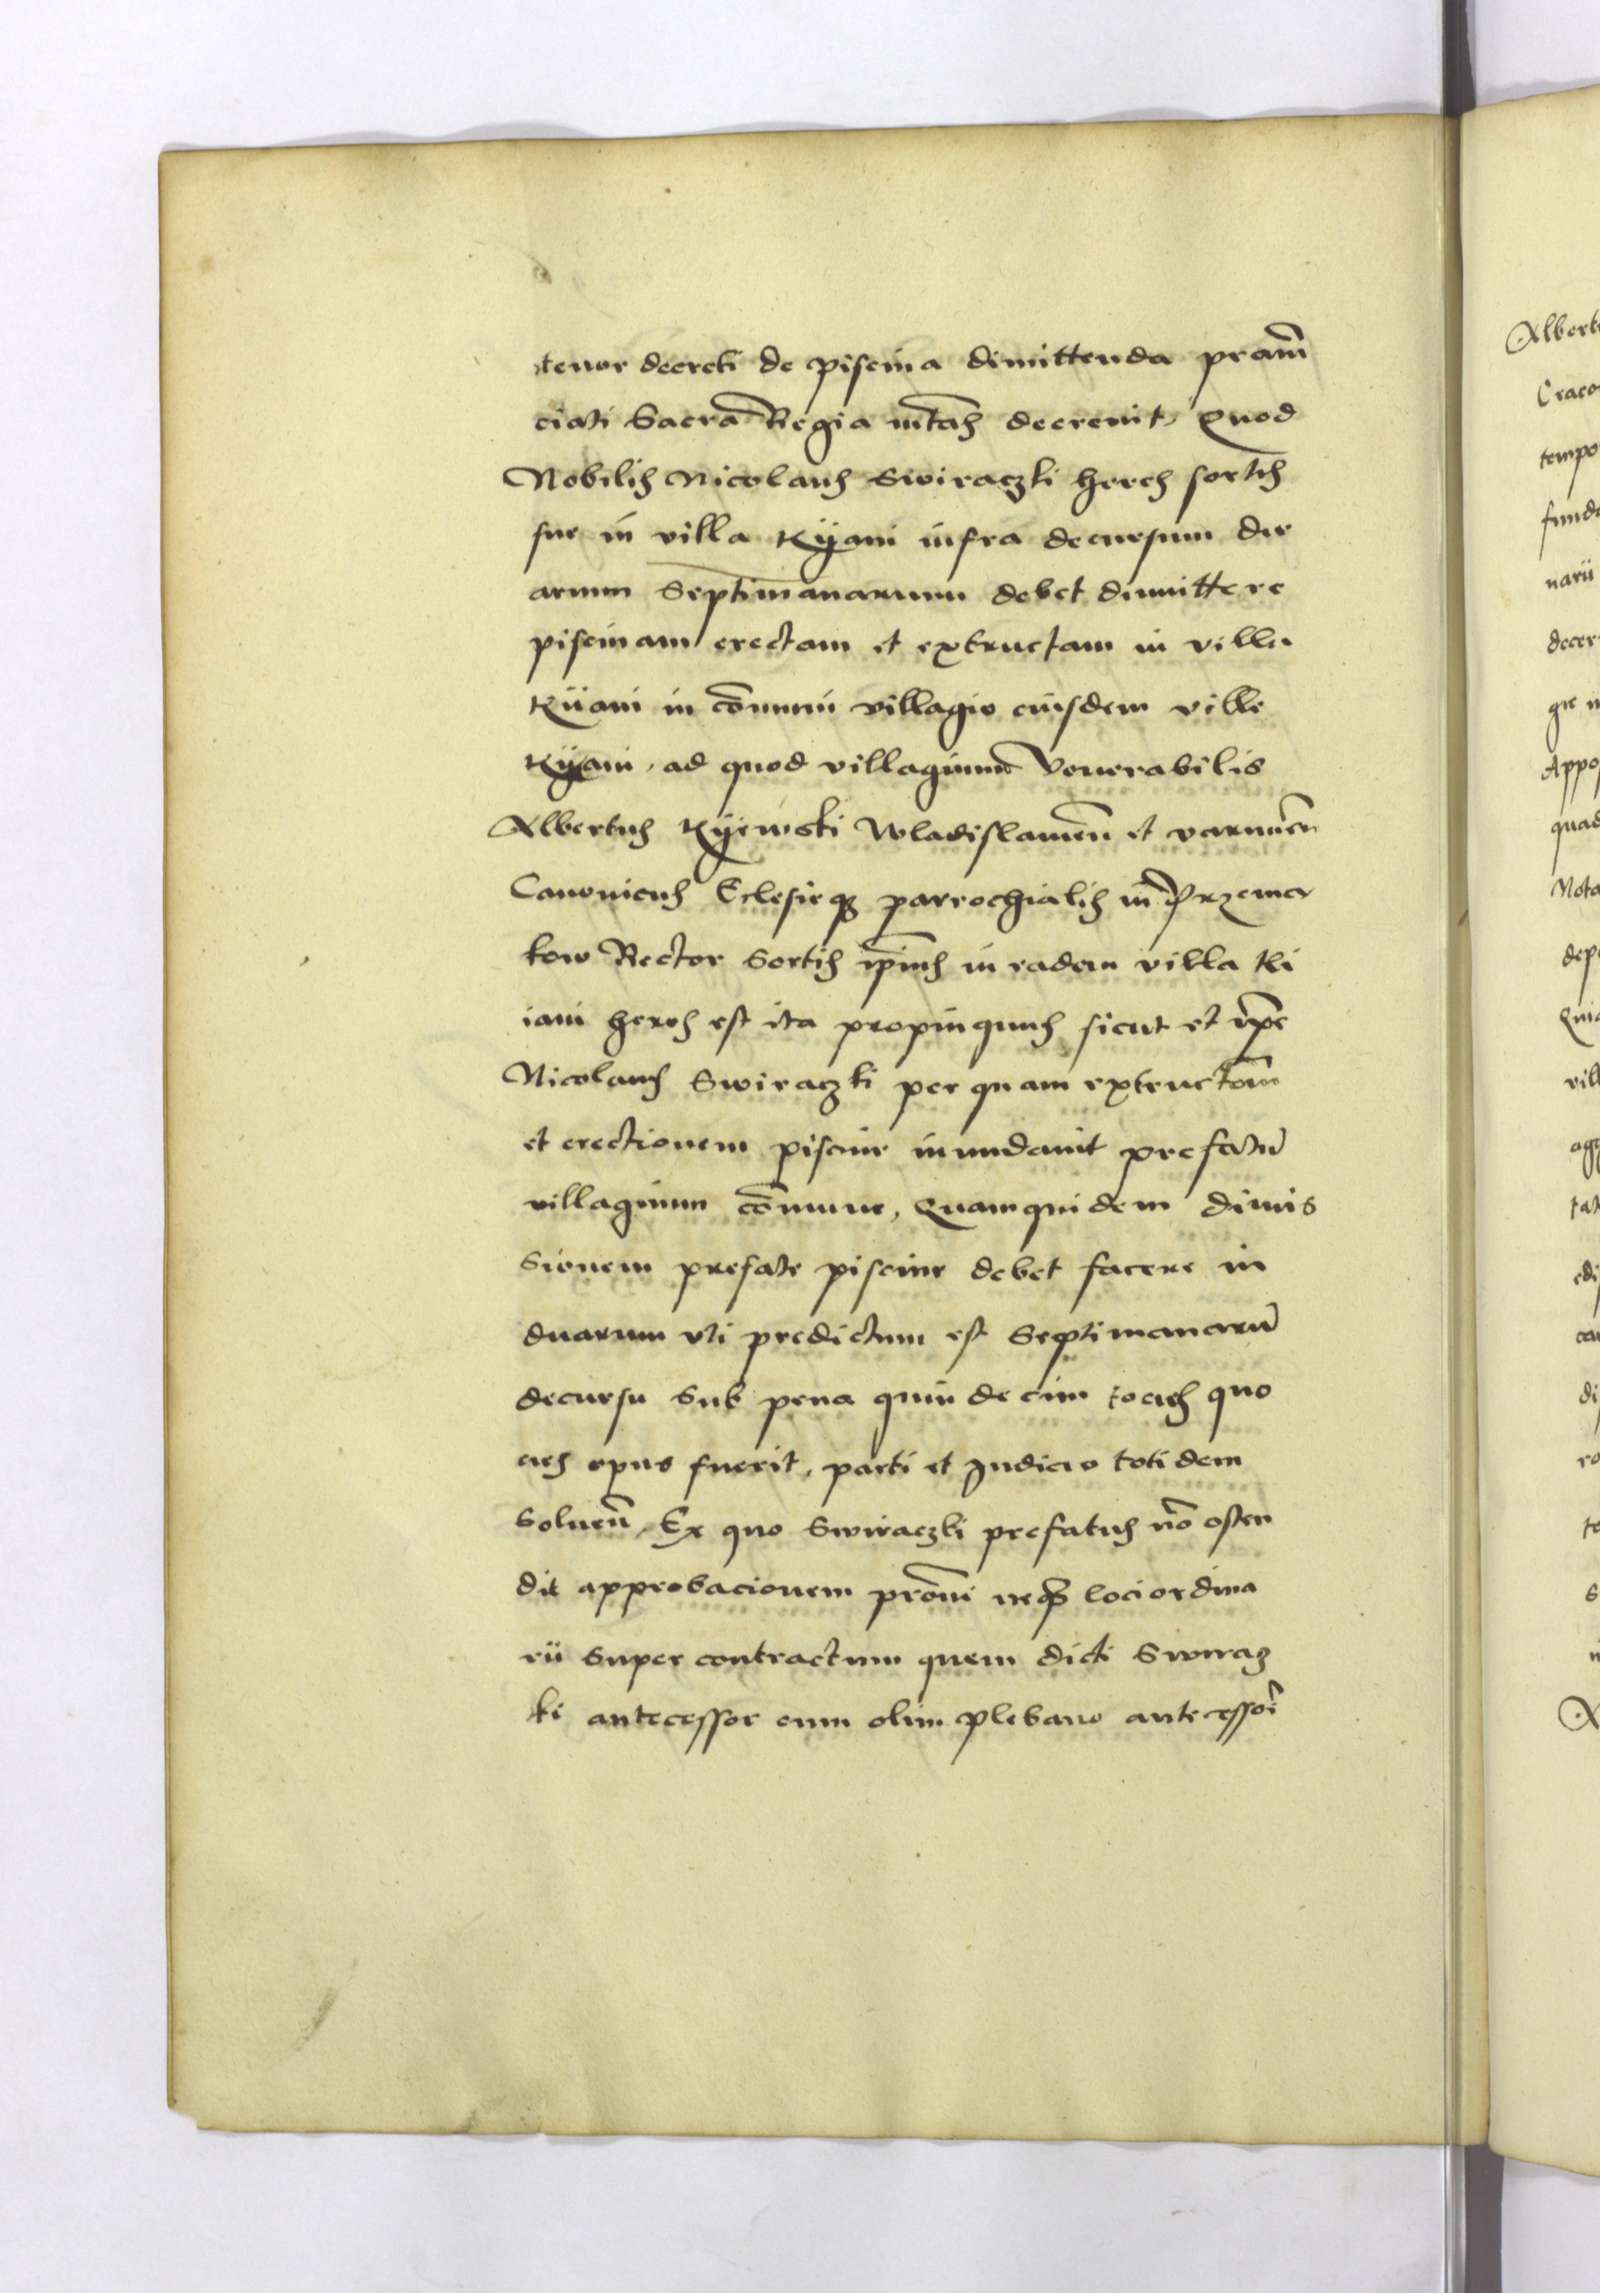 tenor decreti de piscina dimittenda pranū
ciati Sacra Regia mtas decrevit, Quod
Nobilis Nicolaus Swiraczki heres sortis
sue in villa Kÿani infra decursum du
arum Septimanarum debet dimittere
piscinam erectam et extructam in villa
Kÿani in cōmuni villagio eiusdem ville
Kÿani, ad quod villagium Venerabilis
Albertus Kÿewski Wladislauieñ et varmieñ
Canonicus Eclesieqȝ parrochialis in Przemer
kow Rector Sortis ipīus in eadem villa Ki
iani heres est ita propinquus sicut et ipē
Nicolaus Swiraczki per quam extructōm
et erectionem piscine inundavit prefatū
villagium cōmune, Quamquidem dimis
Sionem prefate piscine debet facere in
duarum uti predictum est Septimanarū
decursu Sub pena quindecim tocies quo
cies opus fuerit, parti et Judicio totidem
Solueñ, Ex quo Swiraczki prefatus nō osten
dit approbacionem prōni neqȝ loci ordina
rii Super contractum quem dicti Swiracz
ki antecessor cum olim plebano antecessori
Albert
Craco
tempo
funda
narii
decer
gie
Appo
quad
Nota
dep
Quia
vill
agg
tat
edi
di
ro
te